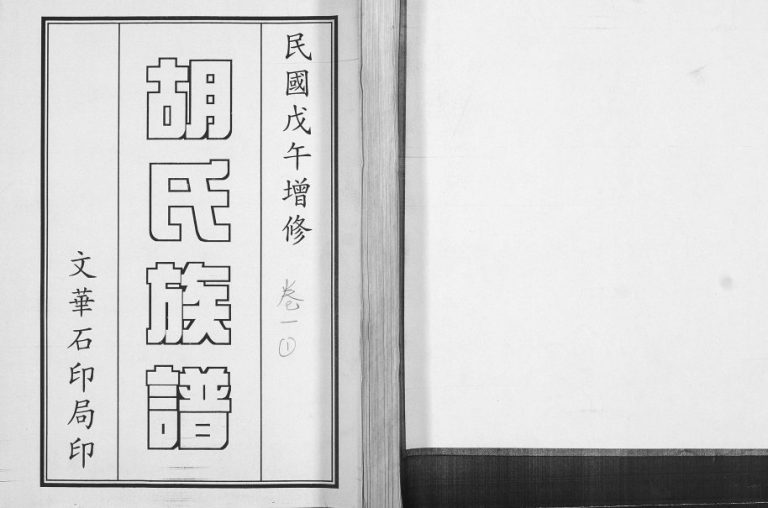 民國戊午增修
卷一①
胡氏族譜
文華石印局印